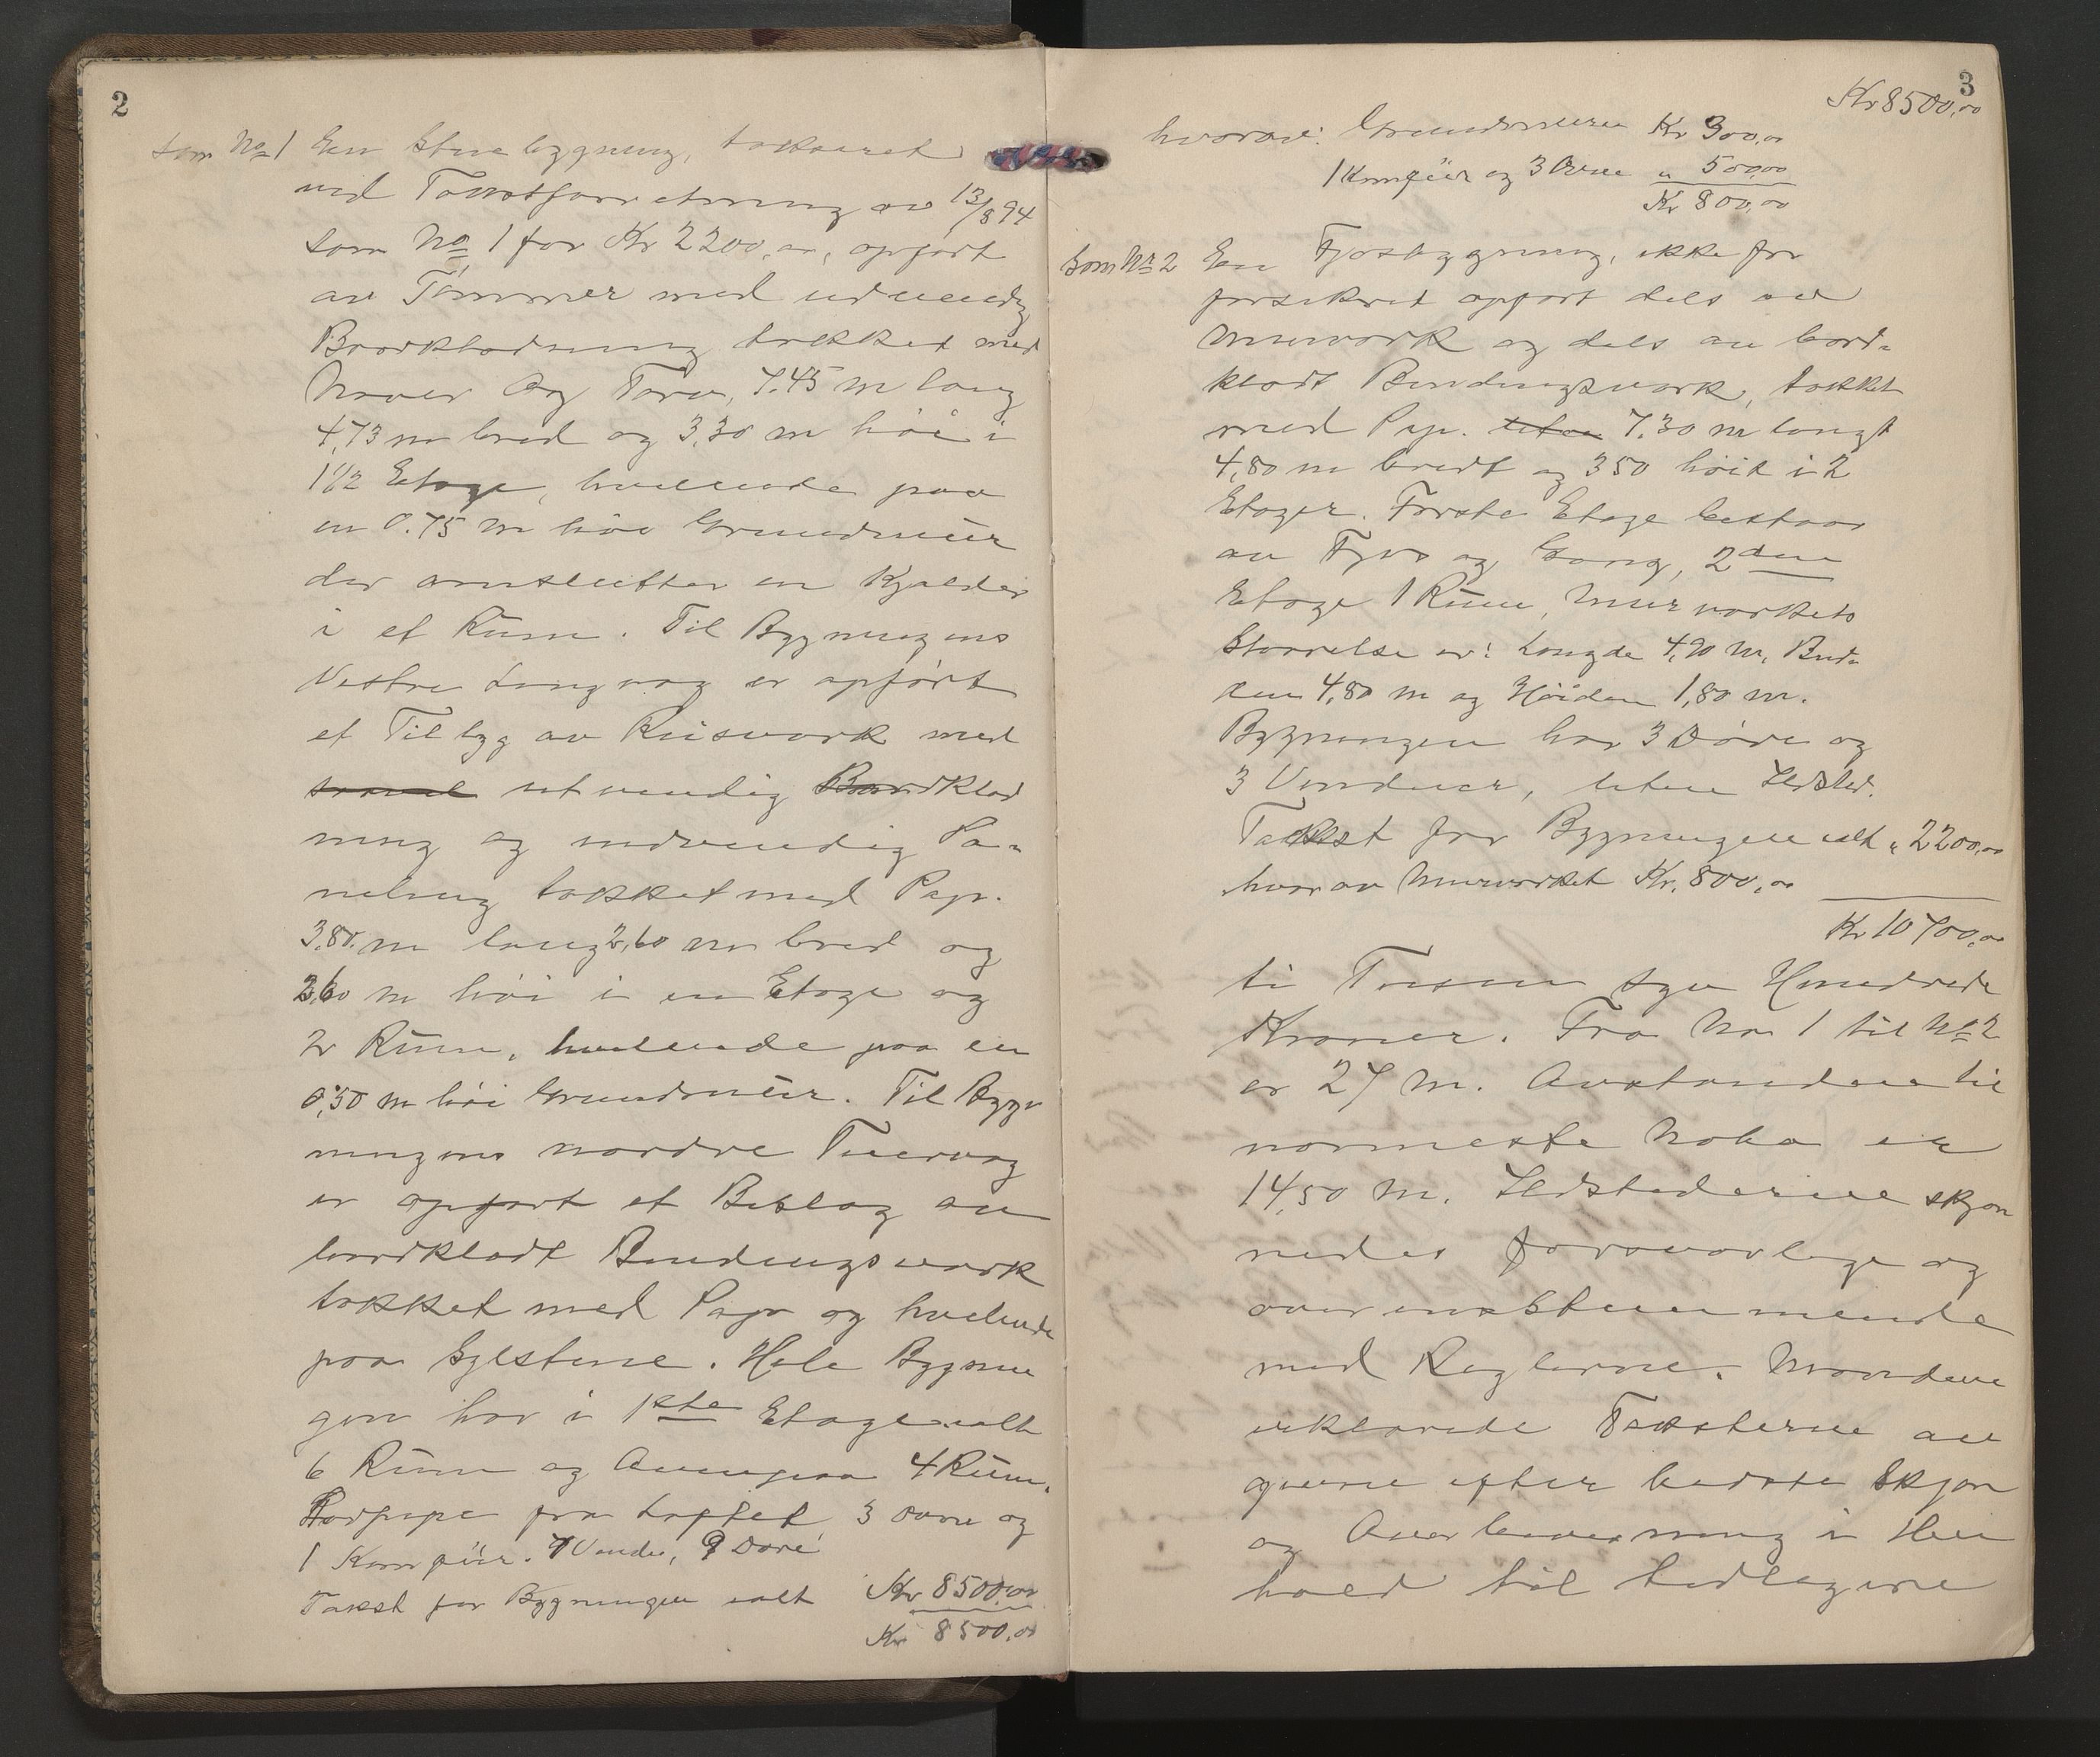 2
som No 1 En Stuebygning, taksaret
ved Taxstforretning av 13/8 94
som No 1 for Kr 2200,00, opført
av Tømmer med udvendig
Bordklædning tækket med
Næver og Torv, 7.45 m lang
4,73 m bred og 3,30 m høi i
1 1/2 Etage, hvilende paa
en 0.75 m høi Grundmur
der omslutter en Kjælder
i et Rum. Til Bygningens
Vestre Langvæg er opført
et Tilbyg av Reisverk med
utvendig Bordklæd
ning og indvendig Pa-
neling tækket med Pap.
3,80 m lang 2,60 m bred og
2,60 m høi i en Etage og
2 Rum, hvilende paa en
0,50 m høi Grundmur. Til Byg-
ningens nordre Tvervæg
er opført et Bislag av
bordklædt Bindingsverk
tækket med Pap og hvilende
paa Sylstene. Hele Bygnin
gen har i 1ste Etage ialt
6 Rum og Ovenpaa 4 Rum.
Rørpipe fra Loftet 3 ovne og
1 Komfur. 7 Vindu, 9 Døre
Takst for Bygningen ialt Kr 8500,00
Kr 8500,00
3
Kr 8500,00
hvorav: Grundmuren Kr 300,00
1 Komfür og 3 Ovne " 500,00
Kr 800,00
som No 2 En Fjøsbygning, ikke før
forsikret opført dels av
Murværk og dels av bord-
klædt Bindingsværk, tækket
med Pap. uten 7.30 m langt
4,80 m bredt og 350 høit i 2
Etager. Første Etage bestaar
av Fjøs og Gang, 2den
Etage 1 Rum, Murværkets
Størrelse er: Længde 4,90 m, Bred-
den 4,80 m og Høiden 1,80 m.
Bygningen har 3 Døre og
3 Vinduer, uten Ildsted.
Takst for Bygningen ialt " 2200,00
hvorav Murværket Kr. 800,00
Kr 10700,00
ti Tusen syv Hundrede
Kroner. Fra No 1 til No 2
er 27 m. Avstanden til
nærmeste Nabo er
14,50 m. Ildstederne skjøn
nedes forsvarlige og
overensstemmende
med Reglerne. Mændene
erklærede Taksterne av
givne efter bedste Skjøn
og Overbevisning i Hen
hold til Lovens